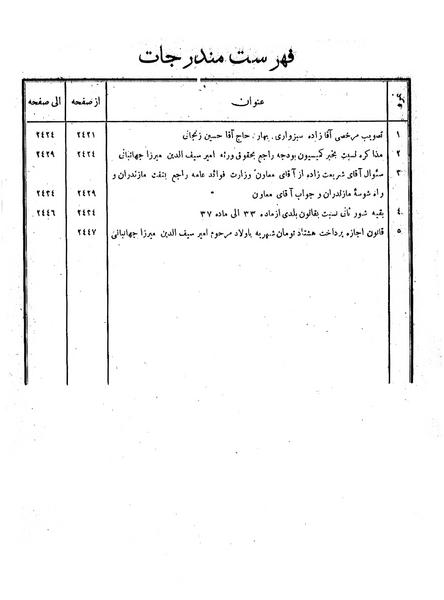 فهرست مندرجات
نمره عنوان از صفحه الی صفحه
۱ تصویب مرخصی آقا زاده سبزواری. بهار. حاج آقا حسین زنجانی ۲۴۲۱ ۲۴۲۴
۲ مذاکره نسبت بخبر کمیسیون بودجه راجع بحقوق ورثه امیر سیف الدین میرزا جهانبانی ۲۴۲۴ ۲۴۲۹
۳ سئوال آقای شریعت زاده از آقای معاون وزارت فوائد عامه راجع بنفت مازندران و
راه شوسه مازندران و جواب آقای معاون ۲۴۲۹ ۲۴۳۴
۴ بقیه شور ثانی نسبت بقانون بلدی از ماده ۳۳ الی ماده ۳۷ ۲۴۳۴ ۲۴۴۶
۵ قانون اجازه پرداخت هشتاد تومان شهریه باولاد مرحوم امیر سیف الدین میرزا جهانبانی ۲۴۴۷